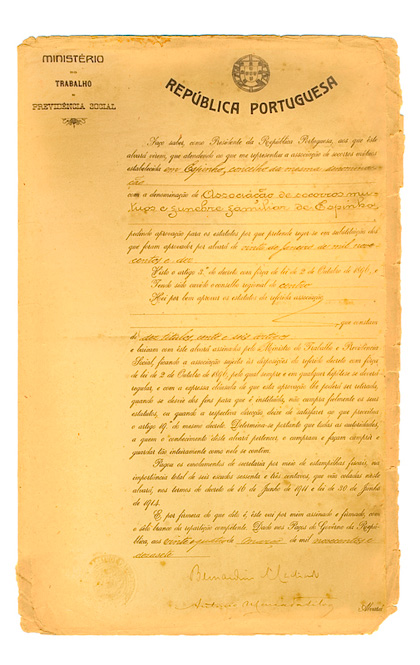 MINISTÉRIO
DO
TRABALHO
E
PREVIDÊNCIA SOCIAL
REPÚBLICA PORTUGUESA
Faço saber, como Presidente da República Portuguesa, aos que êste
alvará virem, que atendendo ao que me representou a associação de socorros mútuos
estabelecida em Espinho, concelho da mesma
com a denominação de Associação de socorros mu-
tuos e funebre familiar de Espinho,
pedindo aprovação para os estatutos por que pretende reger-se em substituição dos
que foram aprovados por alvará de vinte de Janeiro de mil nove-
centos e dez
Visto o artigo 3.º do decreto com fôrça de lei de 2 de Outubro de 1896, e
Tendo sido ouvido o conselho regional do centro
Hei por bem aprovar os estatutos da referida associação
que constam
de dez titulos, cento e seis artigos
e baixam com êste alvará assinados pelo Ministro do Trabalho e Previdência
Social, ficando a associação sujeita às disposições do referido decreto com fôrça
de lei de 2 de Outubro de 1896, pelo qual sempre e em qualquer hipótese se deverá
regular, e com a expressa cláusula de que esta aprovação lhe poderá ser retirada,
quando se desvie dos fins para que é instituída, não cumpra fielmente os seus
estatutos, ou quando a respectiva direcção deixe de satisfazer ao que preceitua
o artigo 19.º do mesmo decreto. Determina-se portanto que todas as autoridades,
a quem o conhecimento dêste alvará pertencer, o cumpram e façam cumprir e
guardar tão inteiramente como nele se contêm.
Pagou os emolumentos de secretaria por meio de estampilhas fiscais, na
importância total de seis escudos sessenta e três centavos, que vão coladas neste
alvará, nos termos do decreto de 16 de Junho de 1911 e lei de 30 de Junho
de 1914.
E, por firmeza do que dito é, êste vai por mim assinado e firmado, com
o sêlo branco da repartição competente. Dado nos Paços do Govêrno da Repúb-
lica, aos vinte e quatro de Março de mil novecentos e
dezasete
Bernardino Machado
Alvará